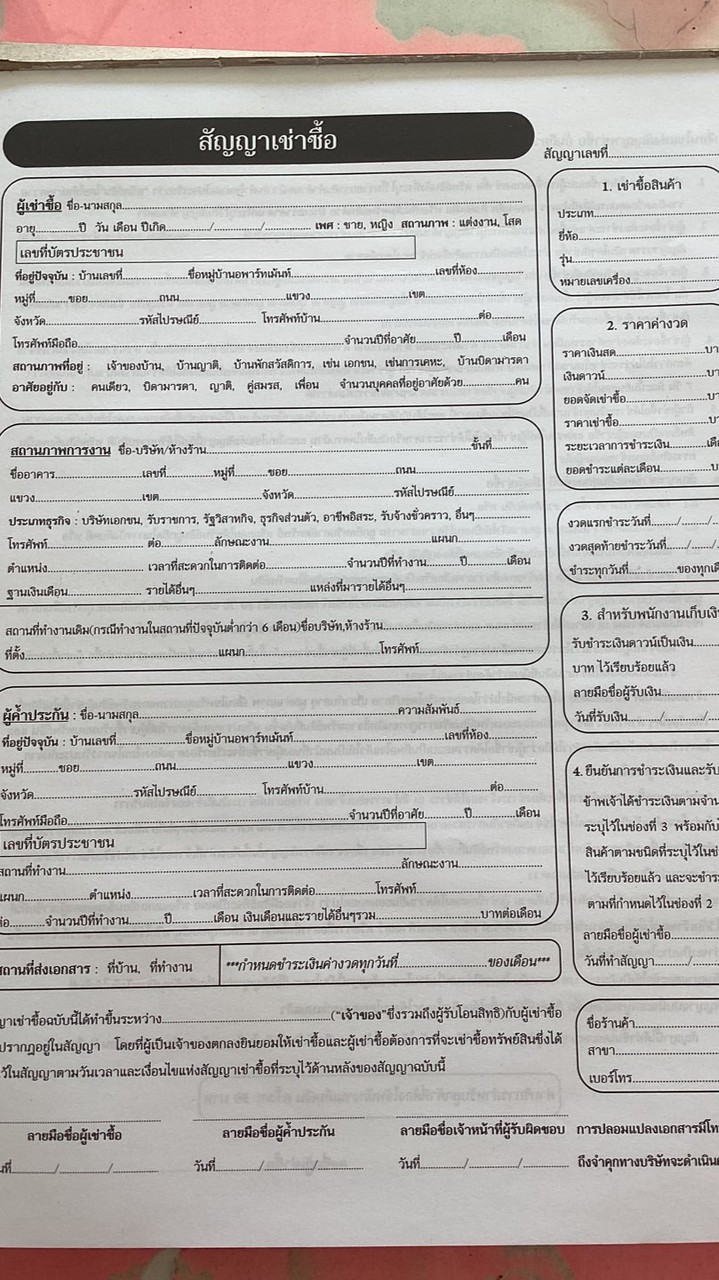 สัญญาเช่าซื้อ
ผู้เช่าซื้อ ชื่อ-นามสกุล
อายุ..........ปี วัน เดือน ปีเกิด........../........../.......... เพศ : ชาย, หญิง สถานภาพ : แต่งงาน, โสด
เลขที่บัตรประชาชน
ที่อยู่ปัจจุบัน : บ้านเลขที่..........ชื่อหมู่บ้านอพาร์ทเม้นท์..........เลขที่ห้อง..........
หมู่ที่..........ซอย..........ถนน..........แขวง..........เขต..........
จังหวัด..........รหัสไปรษณีย์.......... โทรศัพท์บ้าน..........ต่อ..........
โทรศัพท์มือถือ..........จำนวนปีที่อาศัย..........ปี..........เดือน
สถานภาพที่อยู่ : เจ้าของบ้าน, บ้านญาติ, บ้านพักสวัสดิการ, เช่น เอกชน, เช่นการเคหะ, บ้านบิดามารดา
อาศัยอยู่กับ : คนเดียว, บิดามารดา, ญาติ, คู่สมรส, เพื่อน จำนวนบุคคลที่อยู่อาศัยด้วย..........คน
สถานภาพการงาน ชื่อ-บริษัท/ห้างร้าน..........ชั้นที่..........
ชื่ออาคาร..........เลขที่..........หมู่ที่..........ซอย..........ถนน..........
แขวง..........เขต..........จังหวัด..........รหัสไปรษณีย์..........
ประเภทธุรกิจ : บริษัทเอกชน, รับราชการ, รัฐวิสาหกิจ, ธุรกิจส่วนตัว, อาชีพอิสระ, รับจ้างชั่วคราว, อื่นๆ..........
โทรศัพท์..........ต่อ..........ลักษณะงาน..........แผนก..........
ตำแหน่ง.......... เวลาที่สะดวกในการติดต่อ..........จำนวนปีที่ทำงาน..........ปี..........เดือน
ฐานเงินเดือน.......... รายได้อื่นๆ..........แหล่งที่มารายได้อื่นๆ..........
สถานที่ทำงานเดิม(กรณีทำงานในสถานที่ปัจจุบันต่ำกว่า 6 เดือน)ชื่อบริษัท,ห้างร้าน..........
ที่ตั้ง..........แผนก..........โทรศัพท์..........
ผู้ค้ำประกัน : ชื่อ-นามสกุล..........ความสัมพันธ์..........
ที่อยู่ปัจจุบัน : บ้านเลขที่..........ชื่อหมู่บ้านอพาร์ทเม้นท์..........เลขที่ห้อง..........
หมู่ที่..........ซอย..........ถนน..........แขวง..........เขต..........
จังหวัด..........รหัสไปรษณีย์.......... โทรศัพท์บ้าน..........ต่อ..........
โทรศัพท์มือถือ..........จำนวนปีที่อาศัย..........ปี..........เดือน
เลขที่บัตรประชาชน
สถานที่ทำงาน..........ลักษณะงาน..........
แผนก..........ตำแหน่ง..........เวลาที่สะดวกในการติดต่อ..........โทรศัพท์..........
ต่อ..........จำนวนปีที่ทำงาน..........ปี..........เดือน เงินเดือนและรายได้อื่นๆรวม..........บาทต่อเดือน
สถานที่ส่งเอกสาร : ที่บ้าน, ที่ทำงาน
***กำหนดชำระเงินค่างวดทุกวันที่..........ของเดือน***
ญาเช่าซื้อฉบับนี้ได้ทำขึ้นระหว่าง..........("เจ้าของ"ซึ่งรวมถึงผู้รับโอนสิทธิ)กับผู้เช่าซื้อ
ปรากฏอยู่ในสัญญา โดยที่ผู้เป็นเจ้าของตกลงยินยอมให้เช่าซื้อและผู้เช่าซื้อต้องการที่จะเช่าซื้อทรัพย์สินซึ่งได้
ไว้ในสัญญาตามวันเวลาและเงื่อนไขแห่งสัญญาเช่าซื้อที่ระบุไว้ด้านหลังของสัญญาฉบับนี้
ลายมือชื่อผู้เช่าซื้อ
ลายมือชื่อผู้ค้ำประกัน
ลายมือชื่อเจ้าหน้าที่ผู้รับผิดชอบ
วันที่........../........../..........
วันที่........../........../..........
สัญญาเลขที่..........
1. เช่าซื้อสินค้า
ประเภท..........
ยี่ห้อ..........
รุ่น..........
หมายเลขเครื่อง..........
2. ราคาค่างวด
ราคาเงินสด..........บา
เงินดาวน์..........บา
ยอดจัดเช่าซื้อ..........บา
ราคาเช่าซื้อ..........บ
ระยะเวลาการชำระเงิน..........เดื
ยอดชำระแต่ละเดือน..........บ
งวดแรกชำระวันที่........../........../
งวดสุดท้ายชำระวันที่........../........../
ชำระทุกวันที่..........ของทุกเดื
3. สำหรับพนักงานเก็บเงิน
รับชำระเงินดาวน์เป็นเงิน..........
บาท ไว้เรียบร้อยแล้ว
ลายมือชื่อผู้รับเงิน..........
วันที่รับเงิน........../........../
4. ยืนยันการชำระเงินและรับ
ข้าพเจ้าได้ชำระเงินตามจำน
ระบุไว้ในช่องที่ 3 พร้อมกับ
สินค้าตามชนิดที่ระบุไว้ในช่
ไว้เรียบร้อยแล้ว และจะชำร
ตามที่กำหนดไว้ในช่องที่ 2
ลายมือชื่อผู้เช่าซื้อ..........
วันที่ทำสัญญา........../
ชื่อร้านค้า..........
สาขา..........
เบอร์โทร..........
การปลอมแปลงเอกสารมีโท
ถึงจำคุกทางบริษัทจะดำเนิน